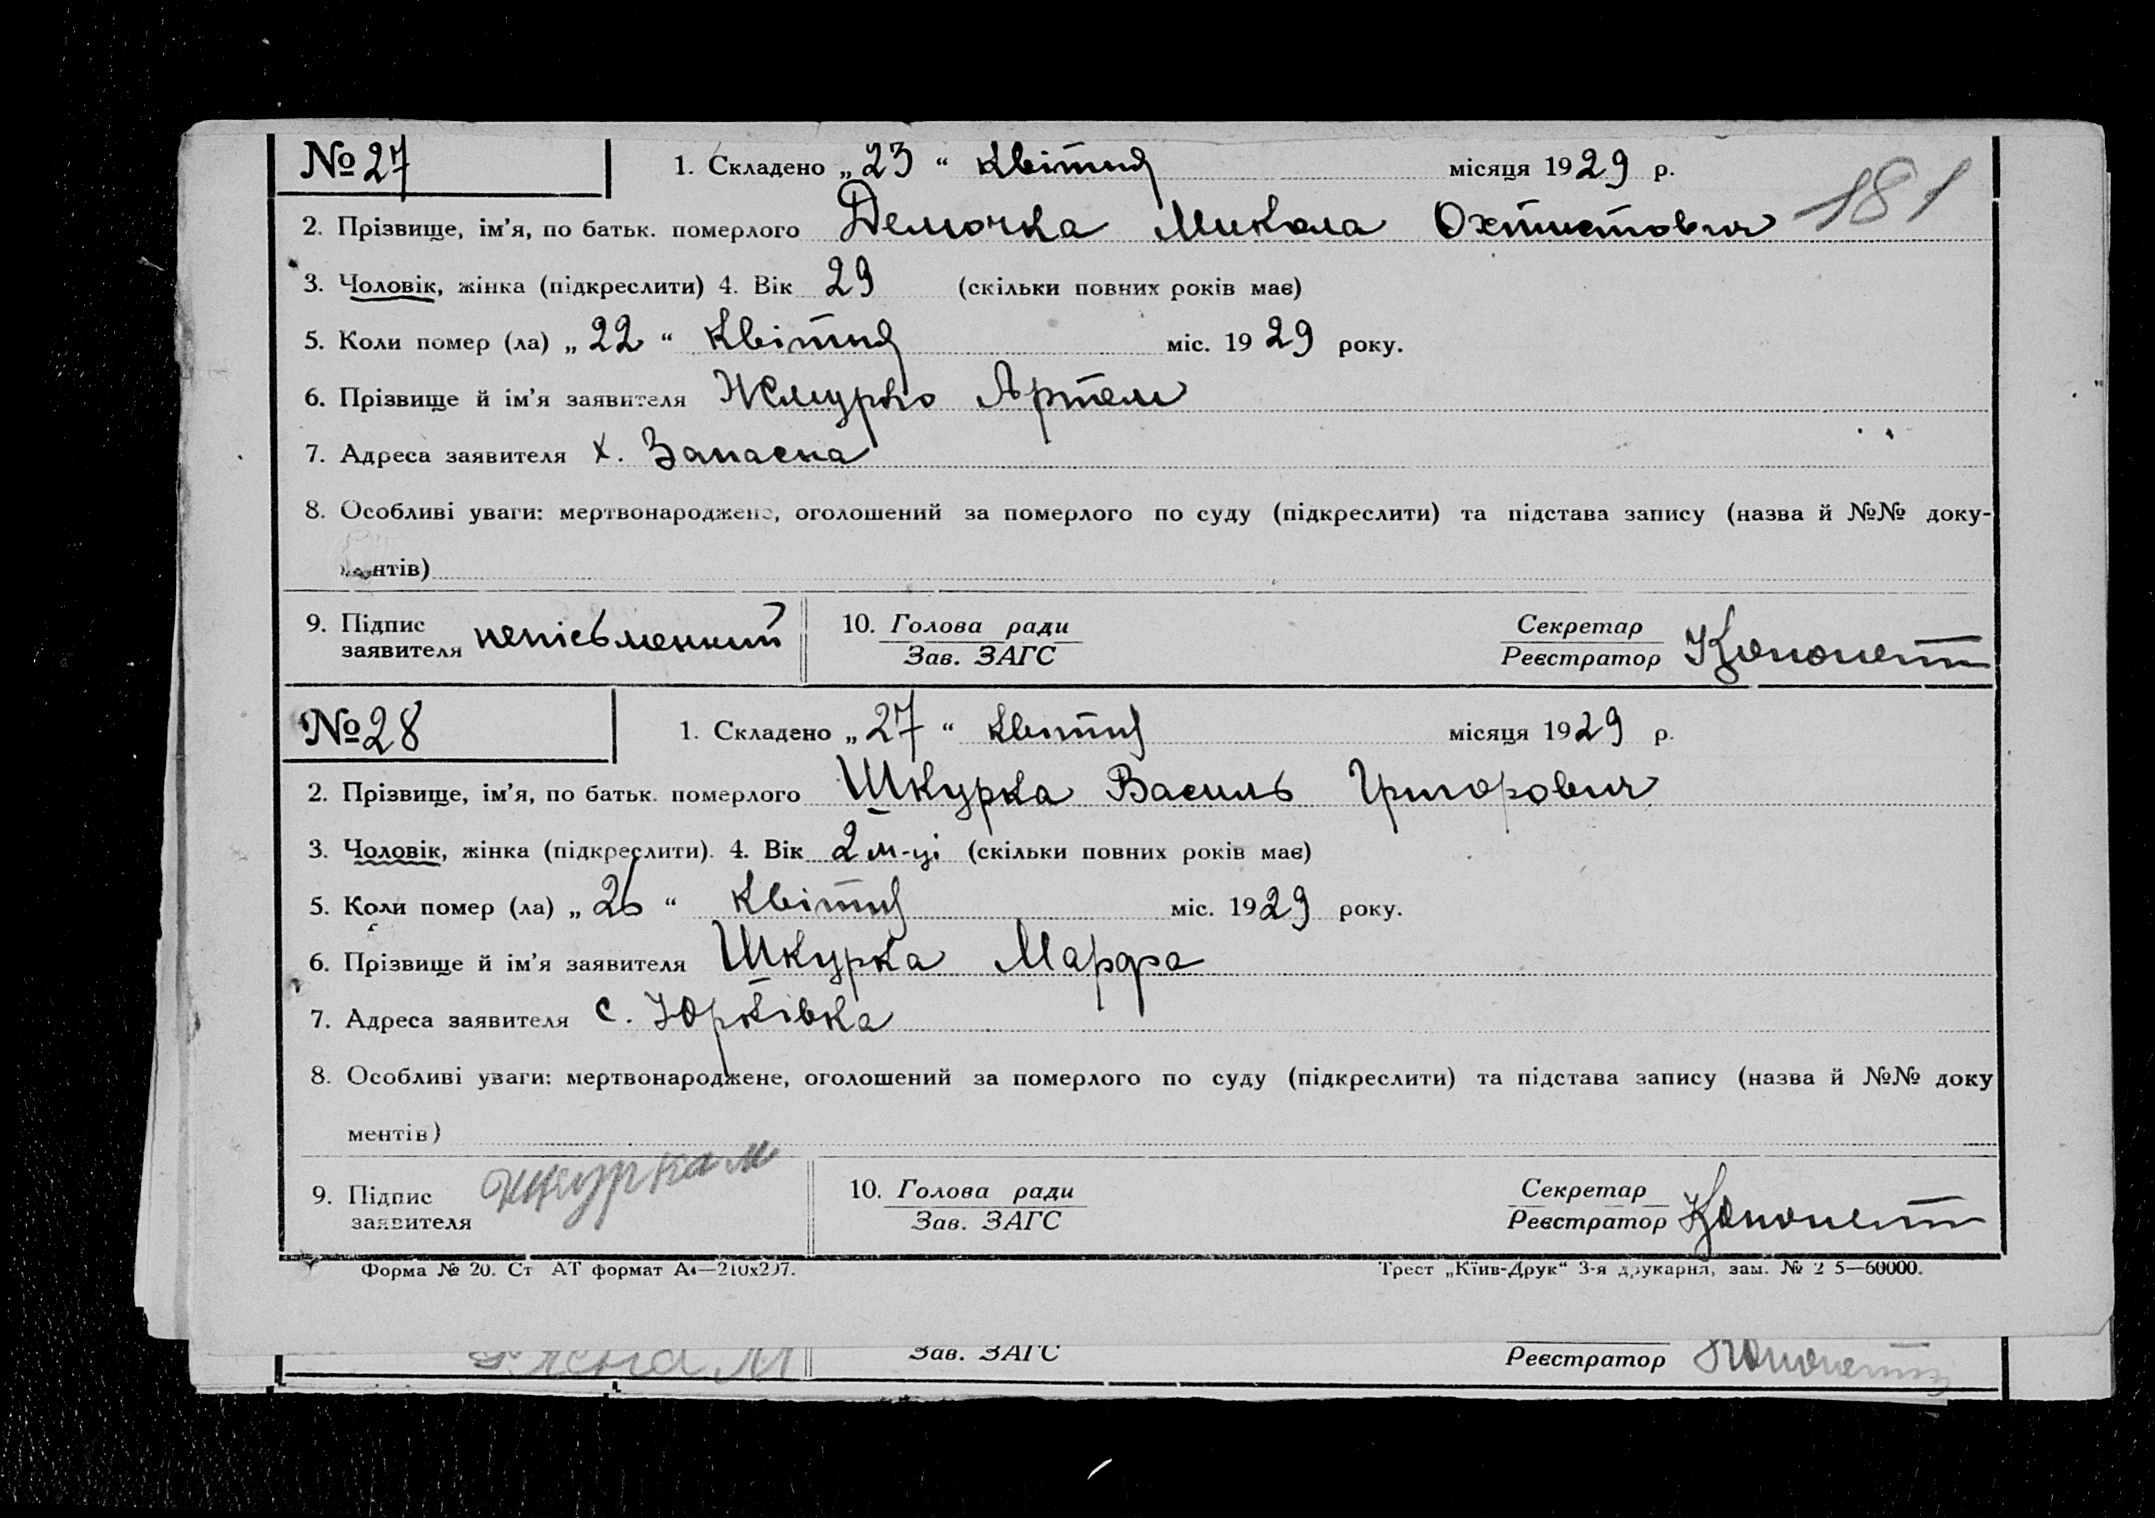 № 27
1. Складено „23“ квітня місяця 1929 р.
181
2. Прізвище, ім'я, по батьк. померлого Демочка Микола Охтистович
3. Чоловік, жінка (підкреслити) 4. Вік 29 (скільки повних років має)
5. Коли помер (ла) „22“ квітня міс. 1929 року.
6. Прізвище й ім'я заявителя Жемурко Артем
7. Адреса заявителя х. Запасна
8. Особливі уваги: мертвонароджене, оголошений за померлого по суду (підкреслити) та підстава запису (назва й №№ доку-
ментів)
9. Підпис заявителя непісьменний
10. Голова ради
Зав. ЗАГС
Секретар
Реєстратор
№ 28
1. Складено „27“ квітня місяця 1929 р.
2. Прізвище, ім'я, по батьк. померлого Шкурка Василь Григорович
3. Чоловік, жінка (підкреслити). 4. Вік 2 м-ці (скільки повних років має)
5. Коли помер (ла) „26“ квітня міс. 1929 року.
6. Прізвище й ім'я заявителя Шкурка Марфа
7. Адреса заявителя с. Юрківка
8. Особливі уваги: мертвонароджене, оголошений за померлого по суду (підкреслити) та підстава запису (назва й №№ доку
ментів)
9. Підпис заявителя Шкурка М
10. Голова ради
Зав. ЗАГС
Секретар
Реєстратор
Форма № 20. Ст АТ формат А4—210х297.
Трест „Київ-Друк“ 3-я друкарня, зам. №
Зав. ЗАГС
Реєстратор